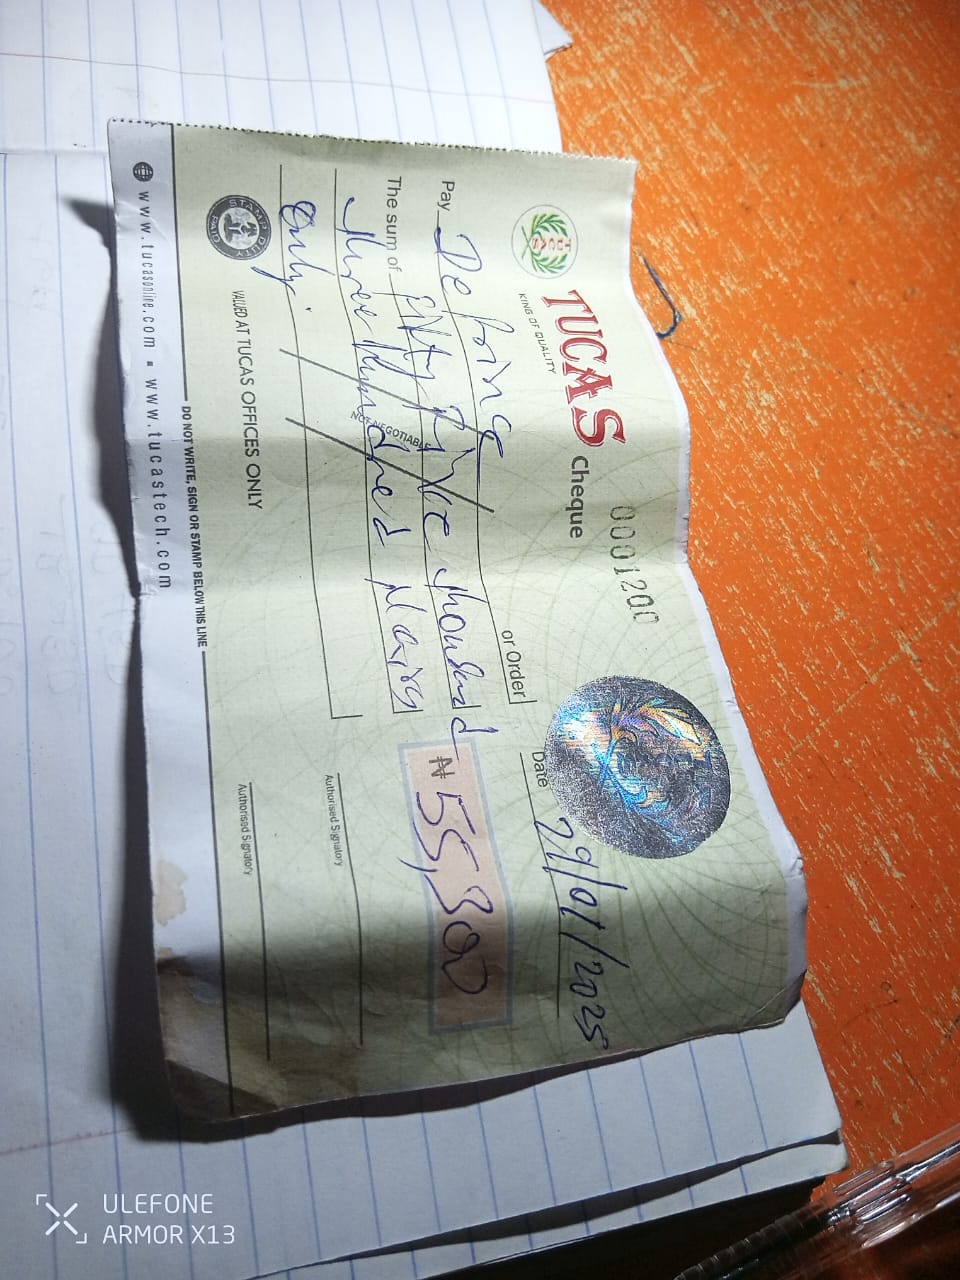 TUCAS Cheque
KING OF QUALITY
TUCAS
0001200
Date 29/01/2025
Pay De prince or Order
The sum of Fifty Five thousand
three Hundred Naira
only.
₦ 55,300
NOT NEGOTIABLE
Authorised Signatory
Authorised Signatory
STAMP DUTY
PAID
VALUED AT TUCAS OFFICES ONLY
DO NOT WRITE, SIGN OR STAMP BELOW THIS LINE
www.tucasonline.com ▪ www.tucastech.com
ULEFONE
ARMOR X13